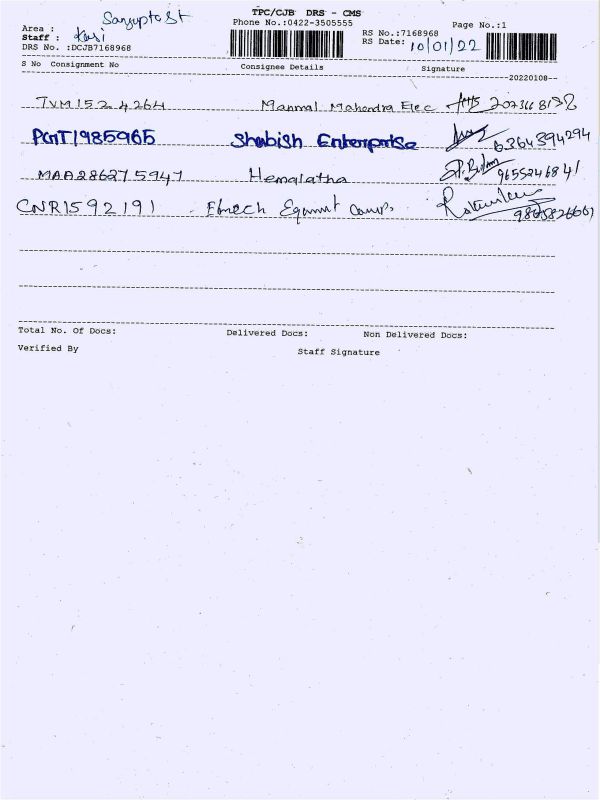 TPC/CJB DRS - CMS
Area : Phone No.:0422-3505555 Page No.:1
Staff : Kasi RS No.:7168968
DRS No. :DCJB7168968 RS Date: 10/01/22
S No Consignment No Consignee Details Signature
20220108
TVM152 4264 Mahendra Elec
PGT1985965 Shabish Enterprise 6364394294
MAA286275947 Hemalatha 9655246841
CNR1592191
Total No. Of Docs: Delivered Docs: Non Delivered Docs:
Verified By Staff Signature